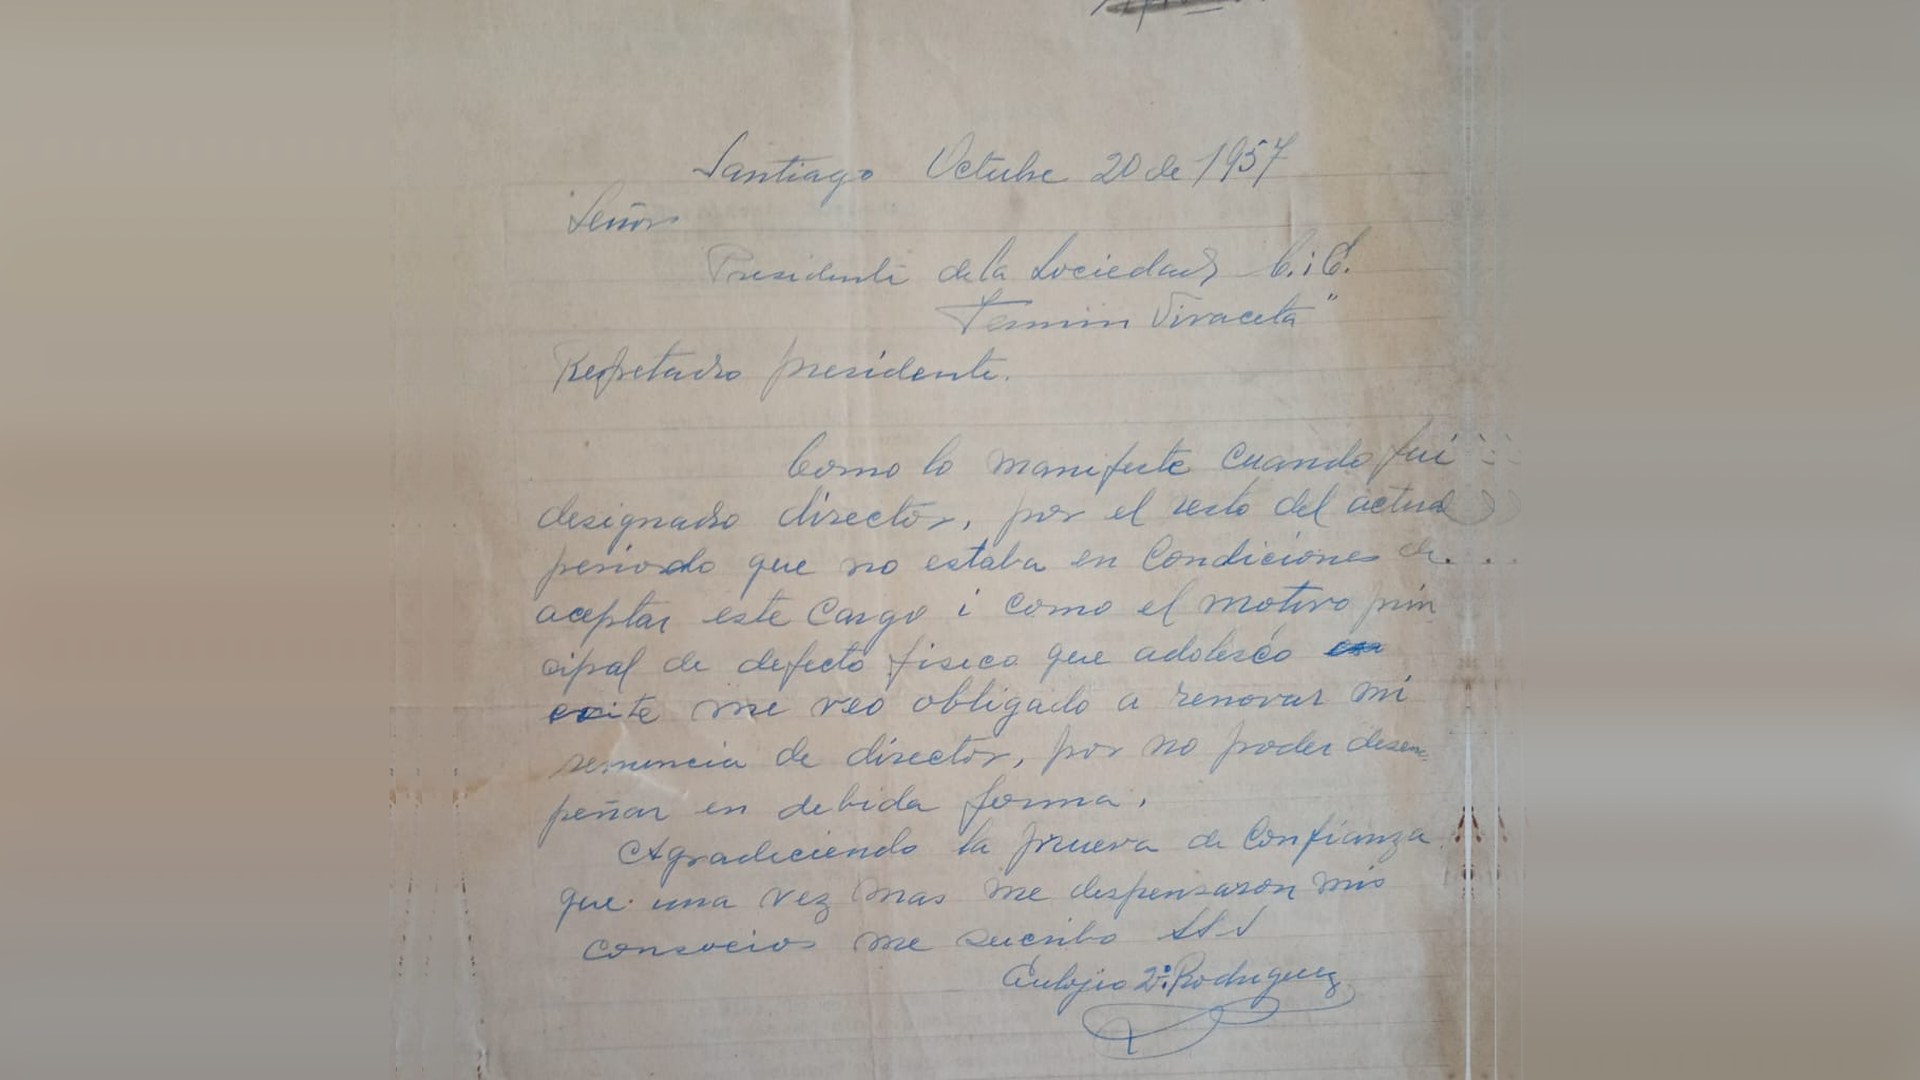 Santiago Octubre 20 de 1957
Señor
Presidente de la Sociedad C. i C.
Fermin Vivaceta"
Respetado presidente.
Como lo manifeste cuando fui
designado director, por el resto del actual
periodo que no estaba en condiciones de
aceptar este cargo i como el motivo prin
cipal de defecto fisico que adolesco
existe me veo obligado a renovar mi
renuncia de director, por no poder desem
peñar en debida forma.
Agradeciendo la prueva de confianza
que una vez mas me dispensaron mis
consocios me sucribo SS-S
Eulojio 2º. Rodriguez